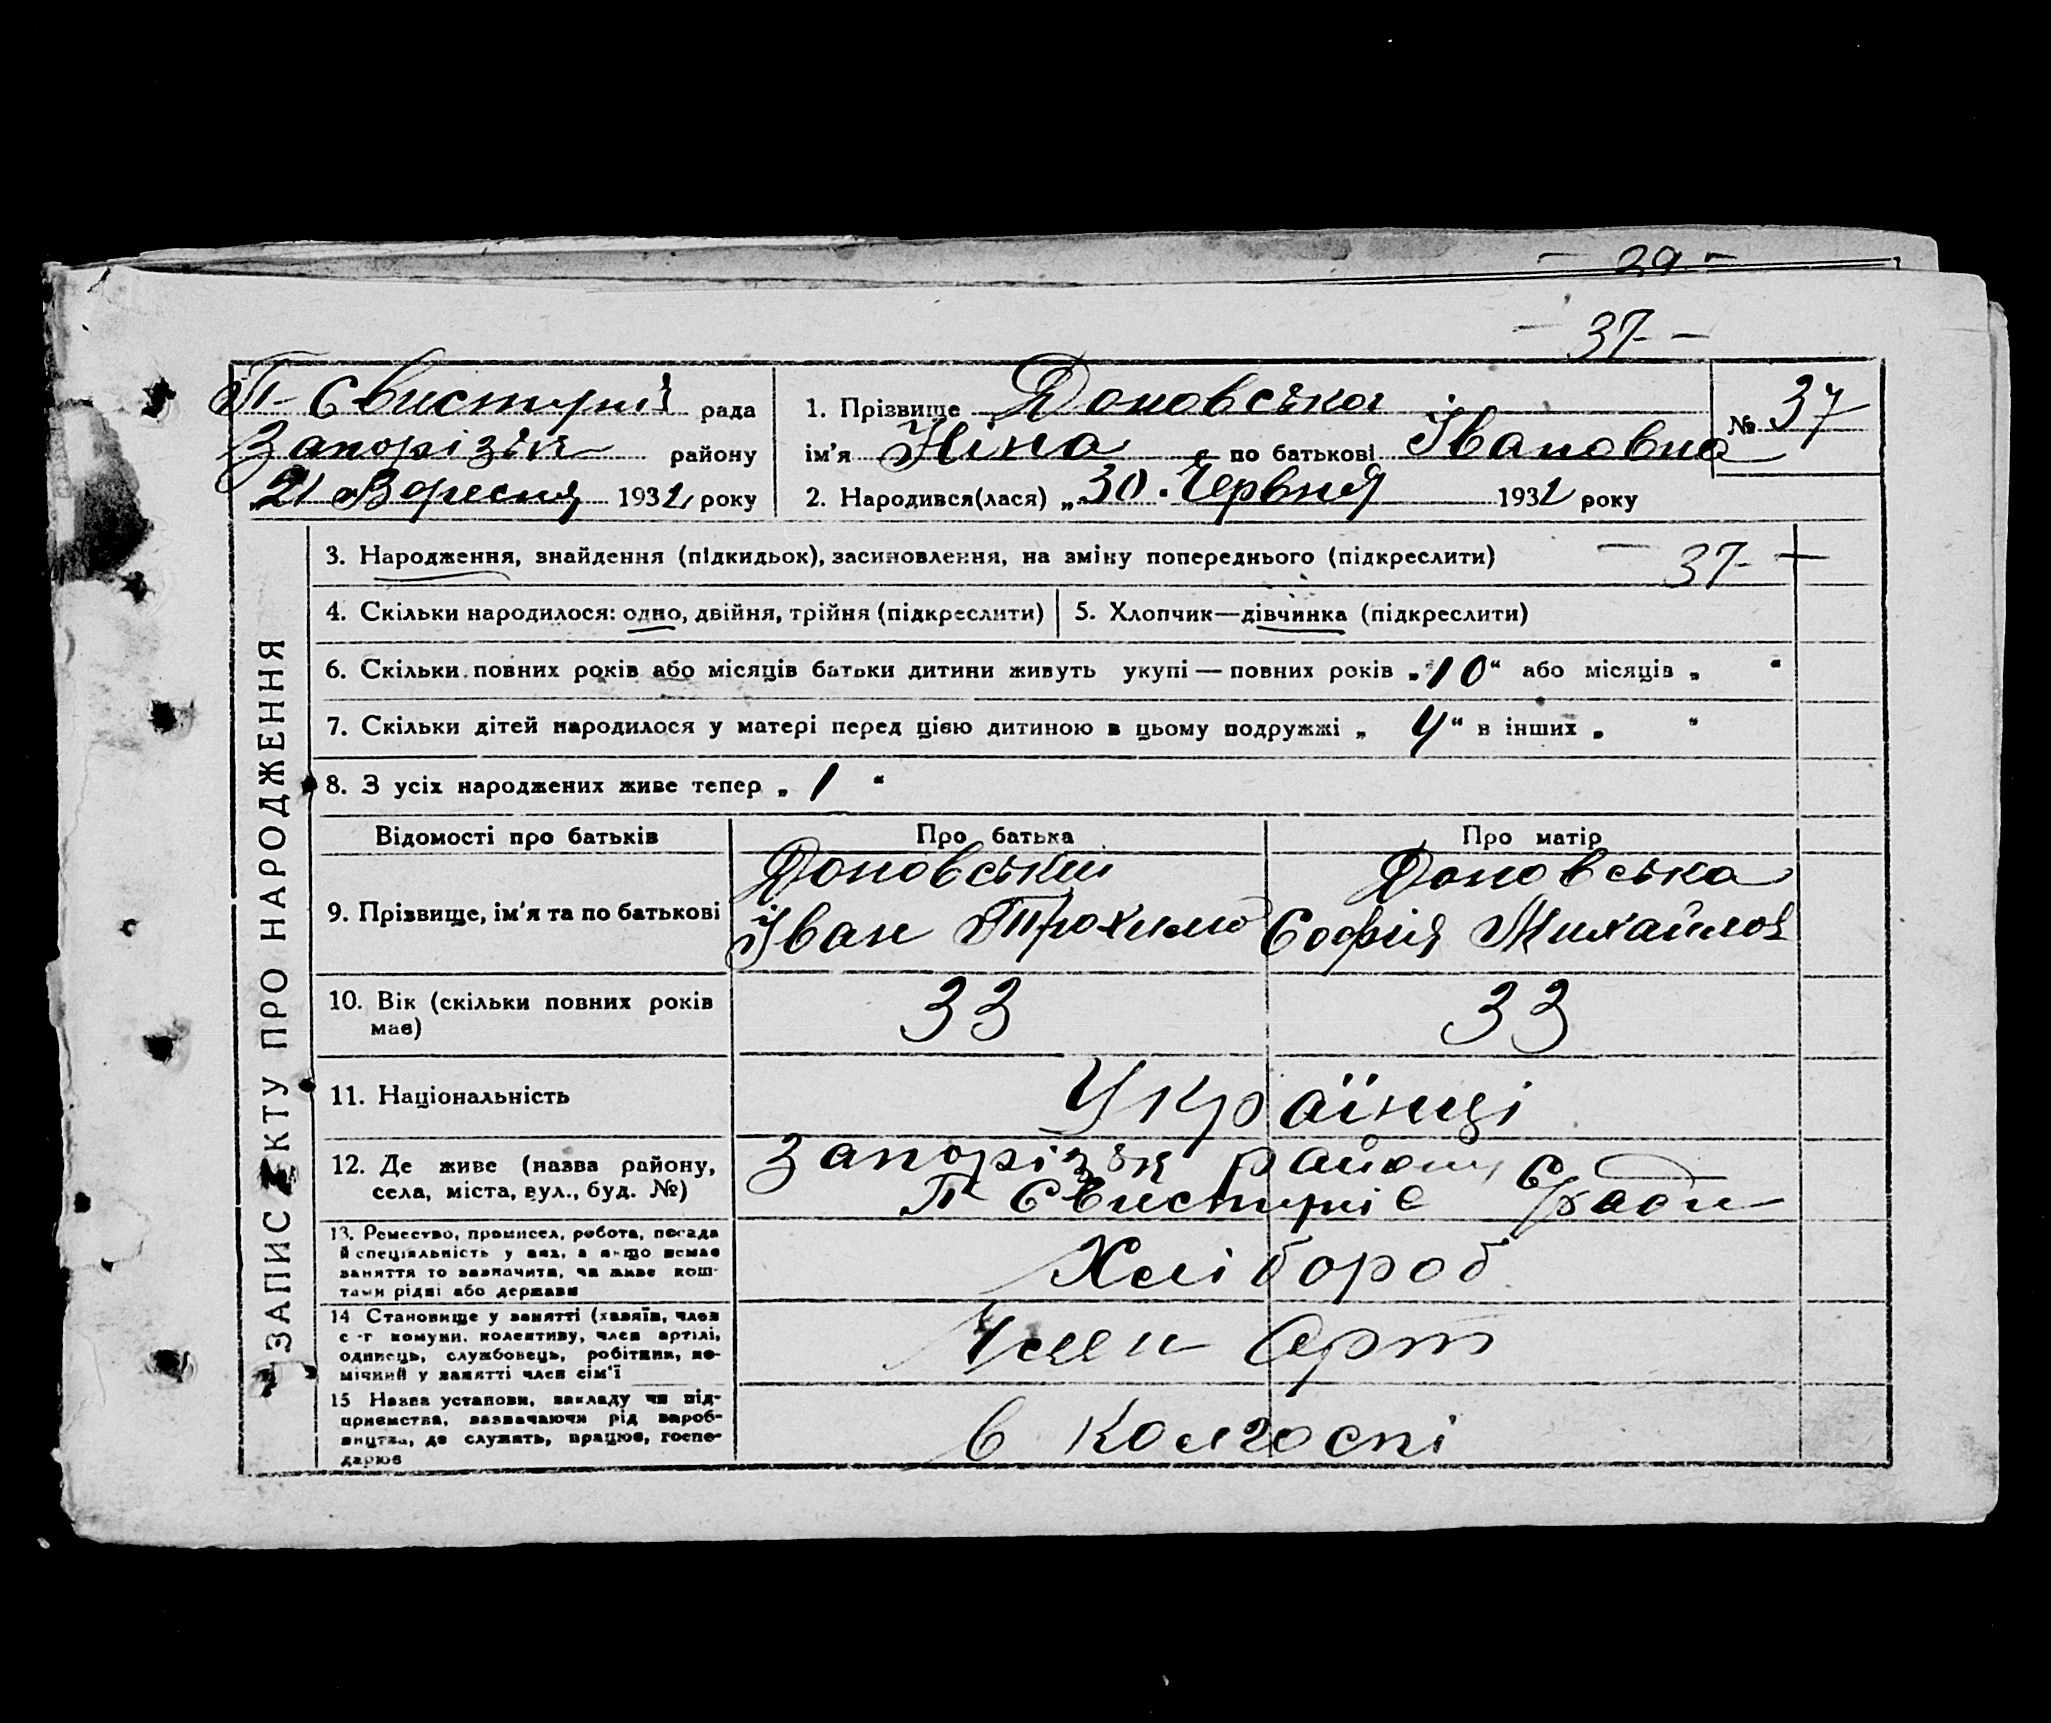 - 29 -
- 37 -
П-Свистуні рада
Запорізьк району
„21 Вересня 1932 року
1. Прізвище Доновська
ім'я Ніна по батькові Івановна
№ 37
2. Народився(лася) „30. Червня 1932 року
ЗАПИС АКТУ ПРО НАРОДЖЕННЯ
3. Народження, знайдення (підкидьок), засиновлення, на зміну попереднього (підкреслити) - 37 -
4. Скільки народилося: одно, двійня, трійня (підкреслити)
5. Хлопчик—дівчинка (підкреслити)
6. Скільки повних років або місяців батьки дитини живуть укупі — повних років „10“ або місяців „ “
7. Скільки дітей народилося у матері перед цією дитиною в цьому подружжі „ 4“ в інших „ “
8. З усіх народжених живе тепер „ 1 “
Відомості про батьків
Про батька
Про матір
9. Прізвище, ім'я та по батькові
Доновський
Іван Трохимо
Доновська
Софія Михайлов
10. Вік (скільки повних років
має)
33
33
11. Національність
Українці
12. Де живе (назва району,
села, міста, вул., буд. №)
Запорізьк району
П Свистуніс С/ради
13. Ремество, промисел, робота, посада
й спеціяльність у них, а якщо немає
заняття то зазначити, чи живе кош-
тами рідні або держави
Хлібороб
14 Становище у занятті (хазяїн, член
с-г комуни, колективу, член артілі,
одинець, службовець, робітник, по-
мічний у занятті член сім'ї
Член Арт
15 Назва установи, закладу чи під-
приємства, зазначаючи рід вироб-
ництва, де служить, працює, госпо-
дарює
в колгоспі